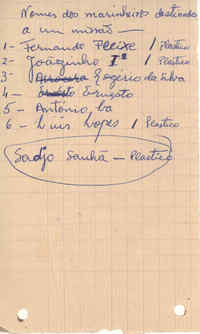 Nomes dos marinheiros destinados
a um missão —
1 - Fernando Pleixe / Plastico
2 - Joãozinho Iº / Plastico
3 - Rogério da Silva
4 — Ernesto
5 — António, ba
6 — Luis Lopes / Plastico
Sadjo Sanhá — Plastico